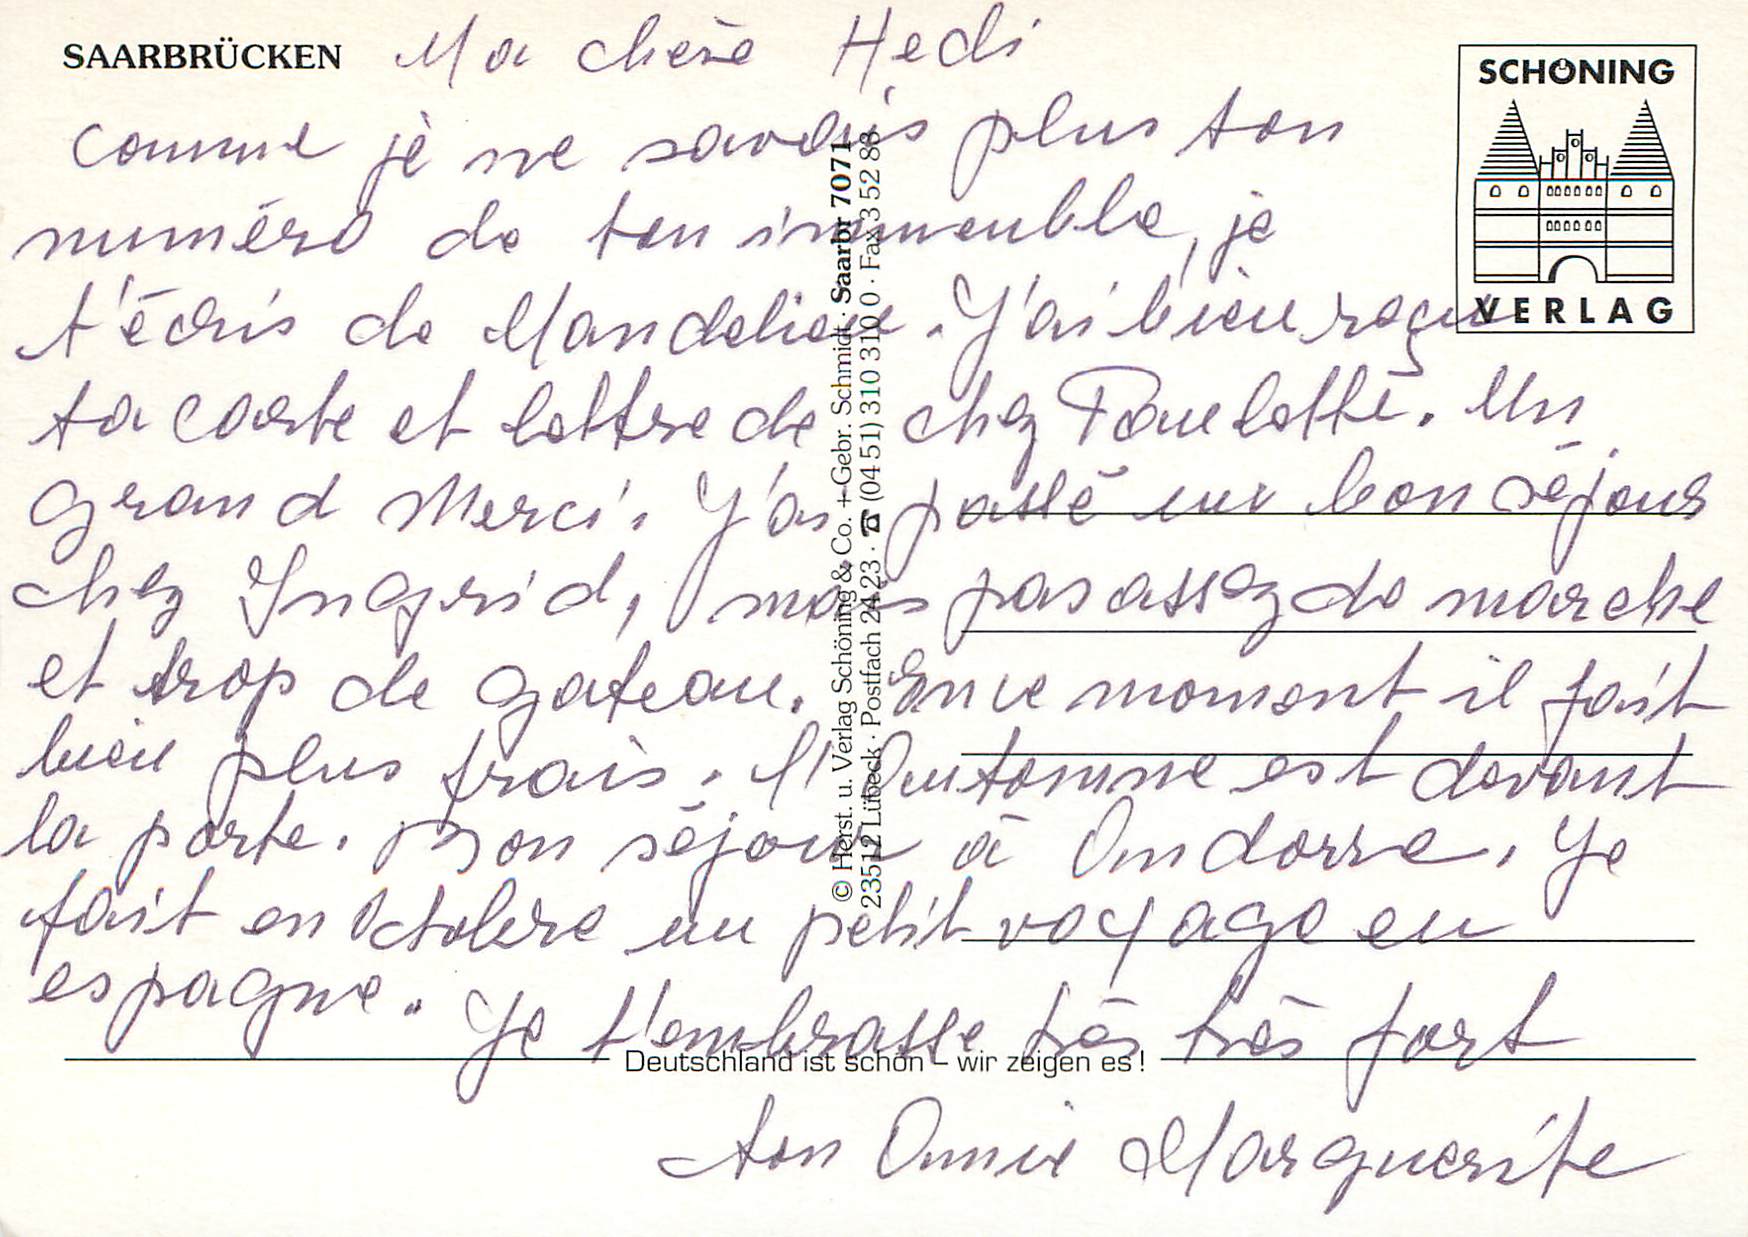 SAARBRÜCKEN
Ma chère Hedi
comme je ne savais plus ton
numéro de ton immeuble, je
t'écris de Mandelieu. J'ai bien reçu
ta carte et lettre de chez Paulette. Un
grand Merci. J'ai passé un bon séjour
chez Ingrid, mais pas assez de marche
et trop de gateau. En ce moment il fait
bien plus frais. l'Automne est devant
la porte. Bon séjour à Andorre. Je
fait en Octobre un petit voyage en
espagne. Je t'embrasse très très fort
ton Amie Marguerite
SCHÖNING
VERLAG
© Herst. u. Verlag Schöning & Co. + Gebr. Schmidt · Saarbr 7071
23512 Lübeck · Postfach 2423 · ☎ (04 51) 310 310 0 · Fax 3 52 88
Deutschland ist schön – wir zeigen es!